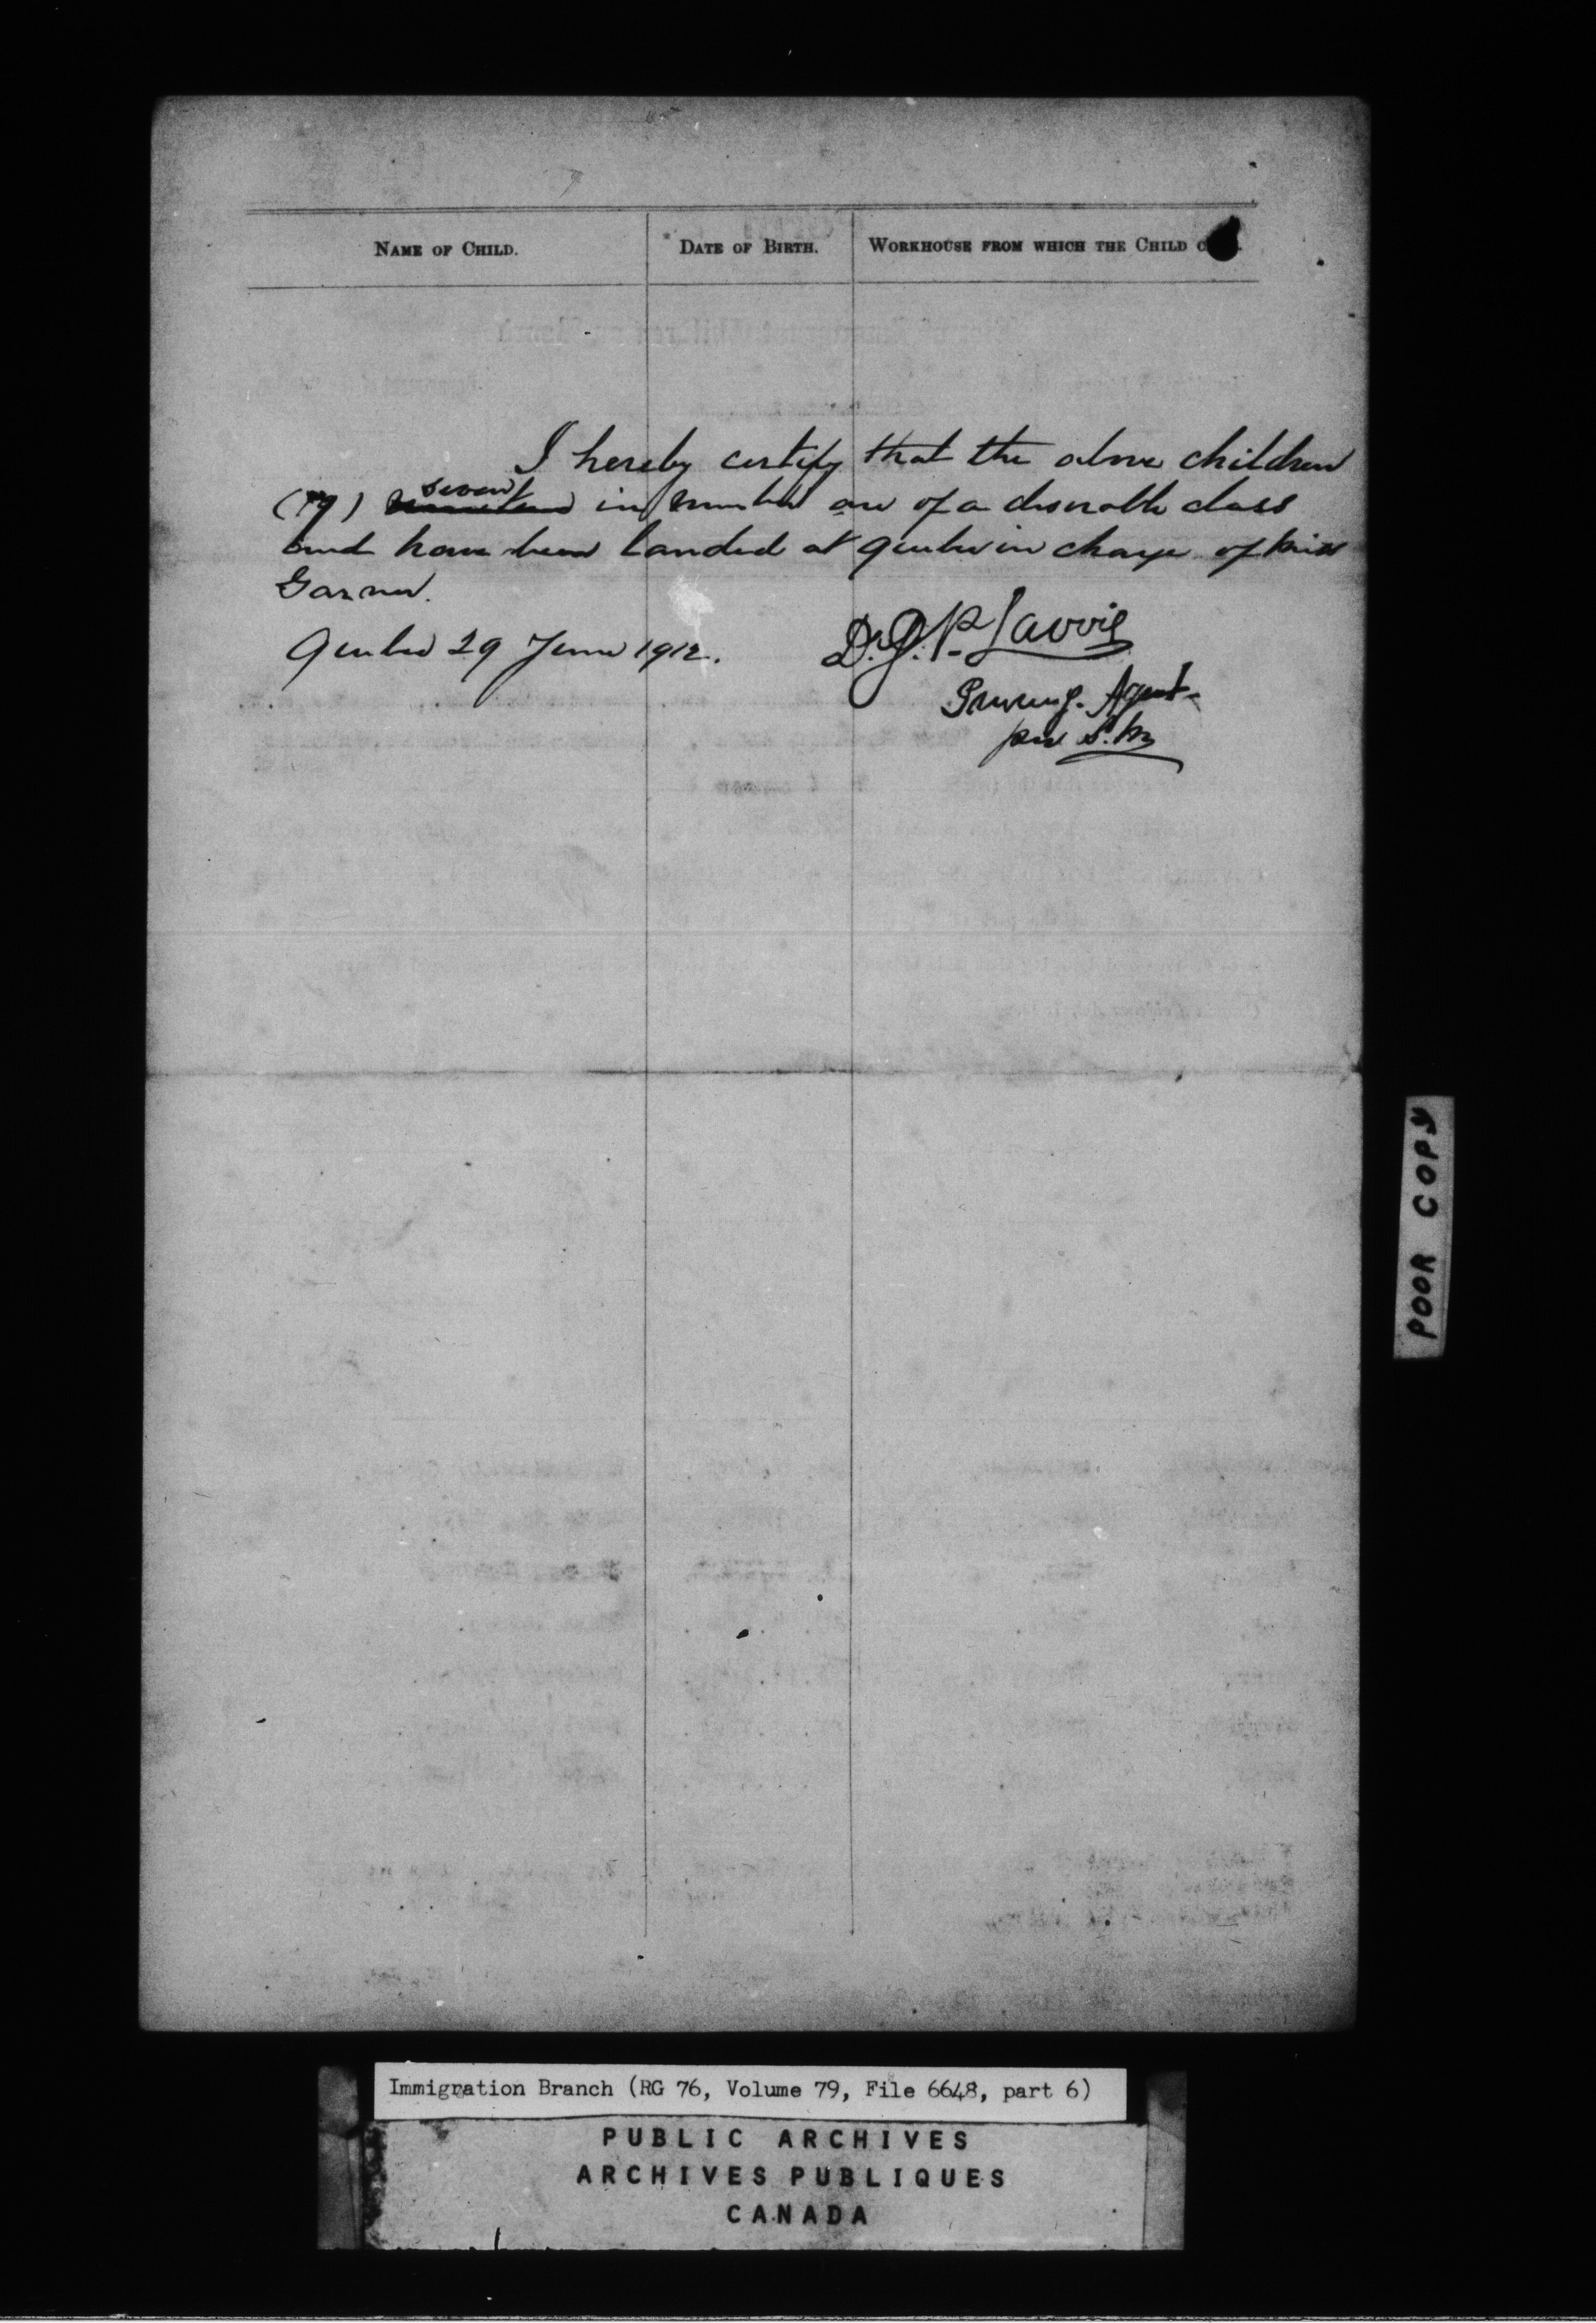 NAME OF CHILD. DATE OF BIRTH. WORKHOUSE FROM WHICH THE CHILD
I hereby certify that the above children
seven
in number are of a desirable class
and have been landed at Quebec in charge of Miss
Garner.
Quebec 29 June 1912.
Dr. J. P. Lavoie
Agent
per S. M
POOR COPY
Immigration Branch (RG 76, Volume 79, File 6648, part 6)
PUBLIC ARCHIVES
ARCHIVES PUBLIQUES
CANADA